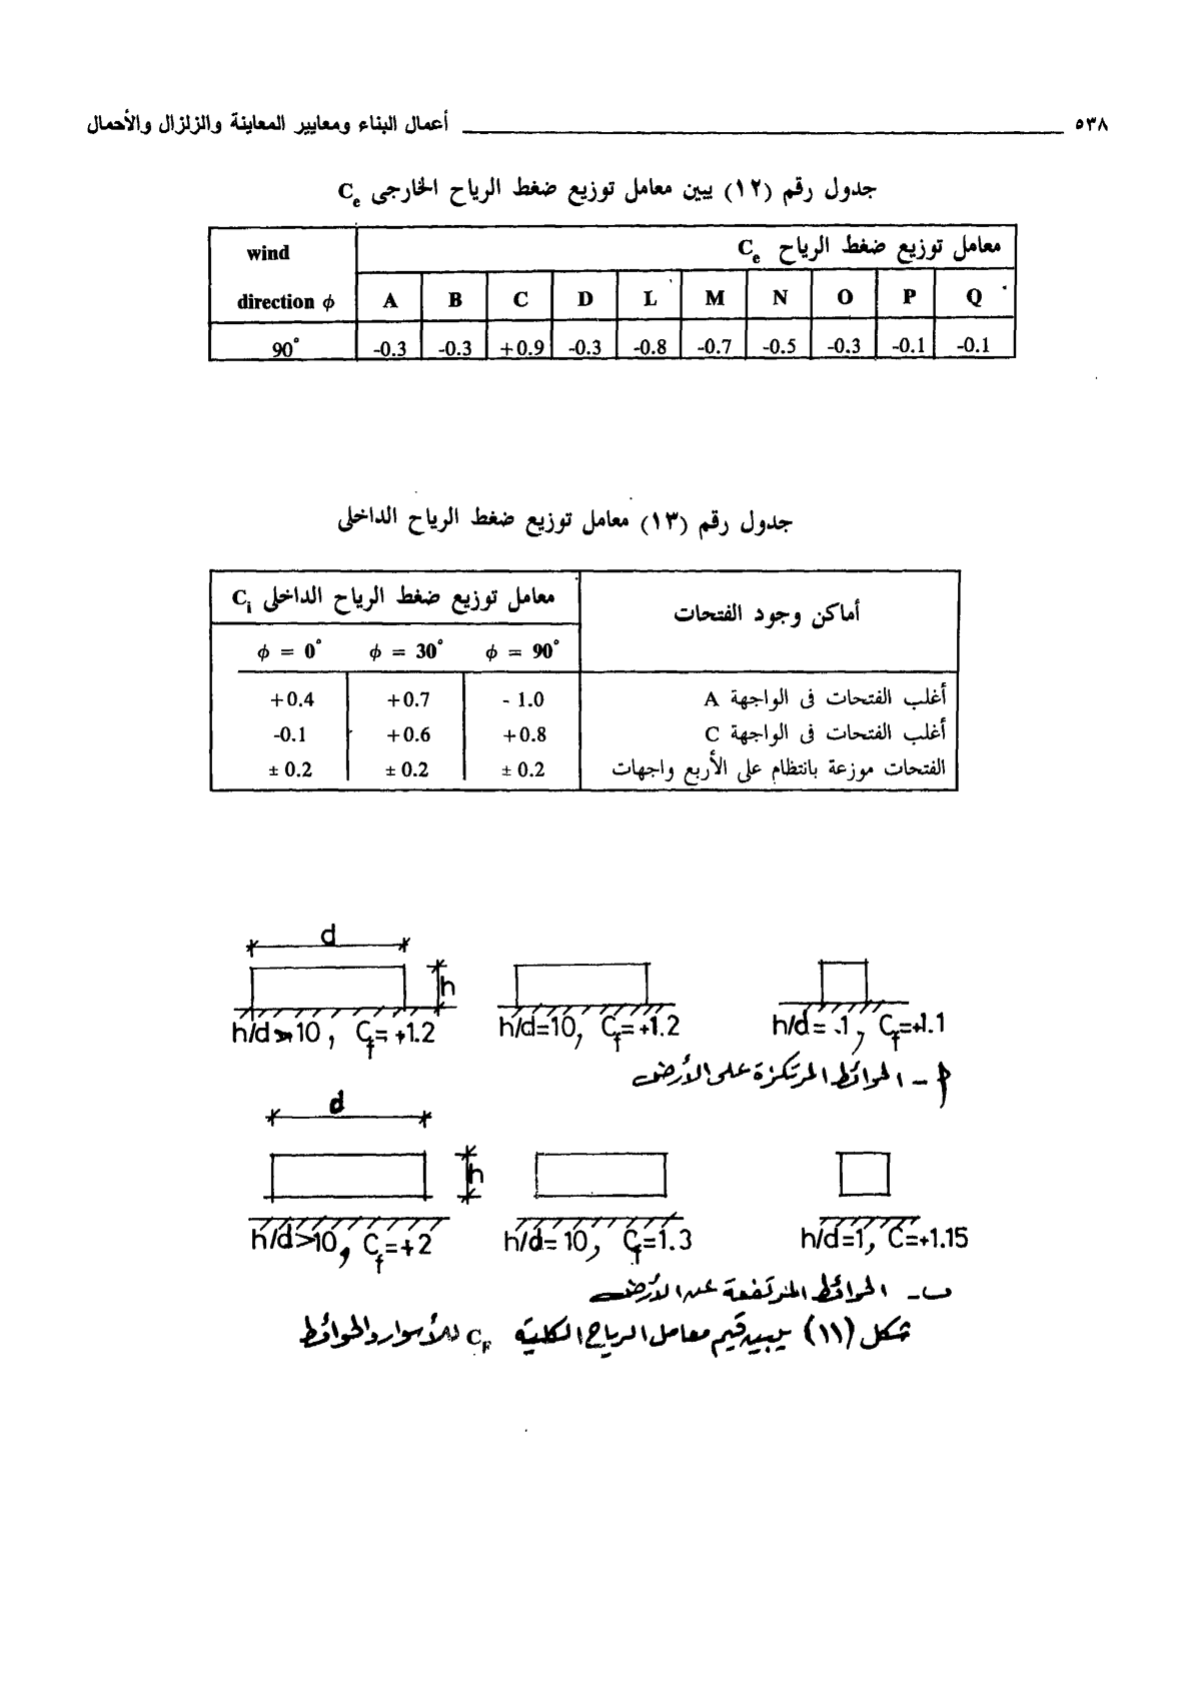 ٥٣٨ أعمال البناء ومعايير المعاينة والزلزال والأحمال
جدول رقم (١٢) يبين معامل توزيع ضغط الرياح الخارجى Ce
wind direction ϕ
معامل توزيع ضغط الرياح Ce
A B C D L M N O P Q
90° -0.3 -0.3 +0.9 -0.3 -0.8 -0.7 -0.5 -0.3 -0.1 -0.1
جدول رقم (١٣) معامل توزيع ضغط الرياح الداخلى
أماكن وجود الفتحات
معامل توزيع ضغط الرياح الداخلى Ci
ϕ = 0° ϕ = 30° ϕ = 90°
+0.4 +0.7 - 1.0 أغلب الفتحات فى الواجهة A
-0.1 +0.6 +0.8 أغلب الفتحات فى الواجهة C
± 0.2 ± 0.2 ± 0.2 الفتحات موزعة بانتظام على الأربع واجهات
d
h
h/d>10, Cf=+1.2 h/d=10, Cf=+1.2 h/d= .1, Cf=+1.1
أ - الحوائط المرتكزة على الأرض
d
h
h/d>10, Cf=+2 h/d=10, Cf=1.3 h/d=1, C=+1.15
ب - الحوائط المرتفعة عن الأرض
شكل (١١) يبين قيم معامل الرياح الكلية CF للأسوار والحوائط